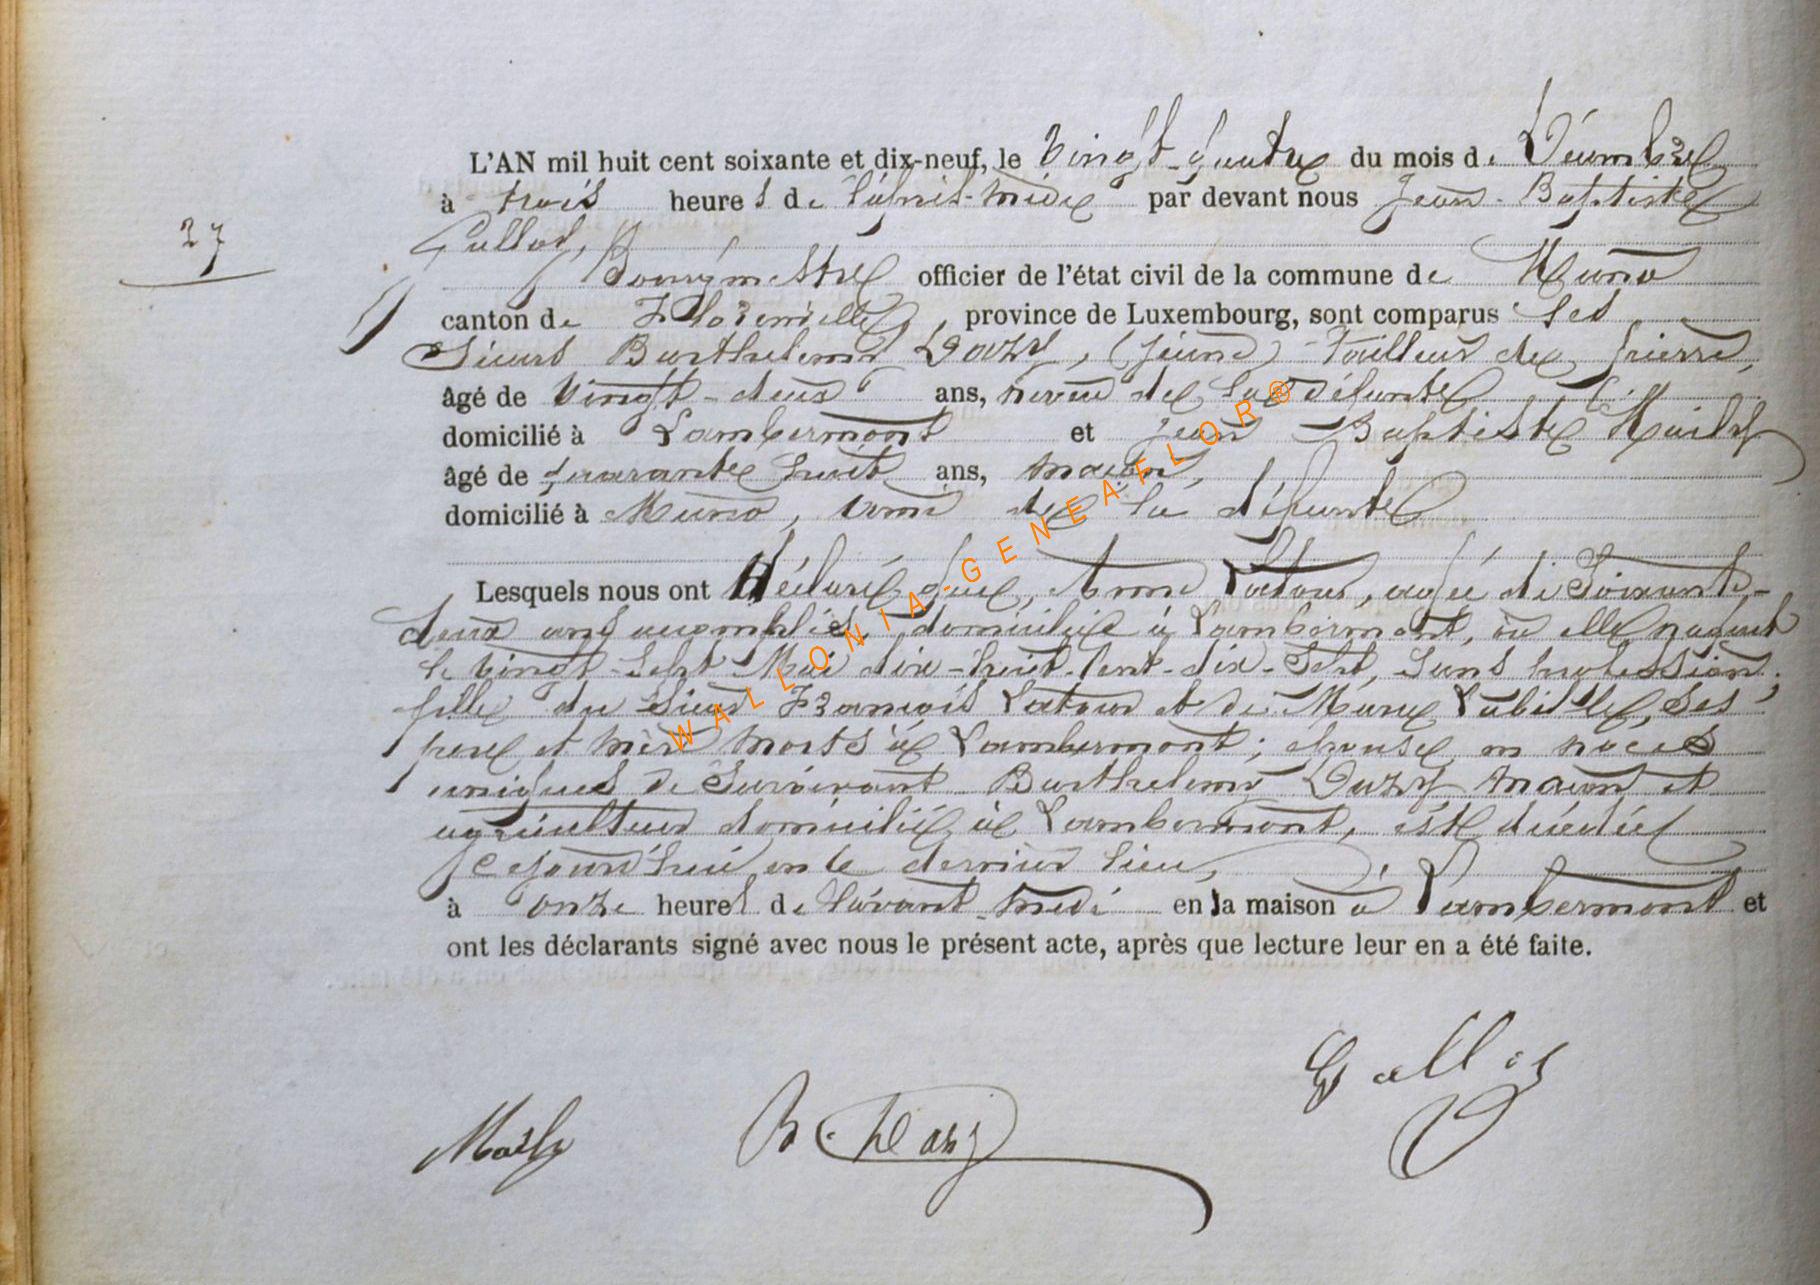 L'AN mil huit cent soixante et dix-neuf, le Vingt-quatre du mois de Décembre
à trois heures de l'après-midi par devant nous Jean-Baptiste
27
Bourgmestre officier de l'état civil de la commune de Muno
canton de Florenville, province de Luxembourg, sont comparus les
Sieurs Barthelemi Dazy, (jeune) tailleur de pierre,
âgé de vingt-deux ans, neveu de la défunte
domicilié à Lambermont et Jean-Baptiste Maily
âgé de quarante huit ans, maçon,
domicilié à Muno, ami de la défunte
Lesquels nous ont déclaré que, Anne Latour, agée de Soixante-
deux ans accomplis, domiciliée à Lambermont, où elle naquit
le vingt-sept Mai dix-huit-cent-dix-sept, sans profession,
fille du Sieur François Latour et de Marie ses
père et mère morts à Lambermont; épouse en noces
uniques de Survivant Barthelemi Dazy maçon et
agriculteur domicilié à Lambermont, est décédée
cejourd'hui en ce dernier lieu,
à onze heures de l'avant-midi en la maison à Lambermont et
ont les déclarants signé avec nous le présent acte, après que lecture leur en a été faite.
Maily B. Dazy
WALLONIA-GENEAFLOR®